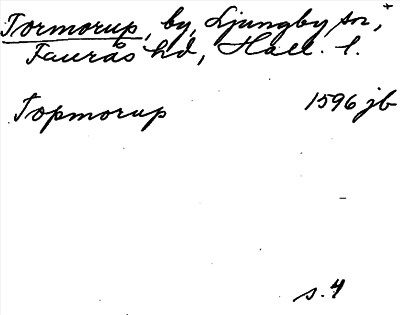 Tormorup, by, Ljungby sn,+
Faurås hd, Hall. l.
Topmorup 1596 jb
s. 4